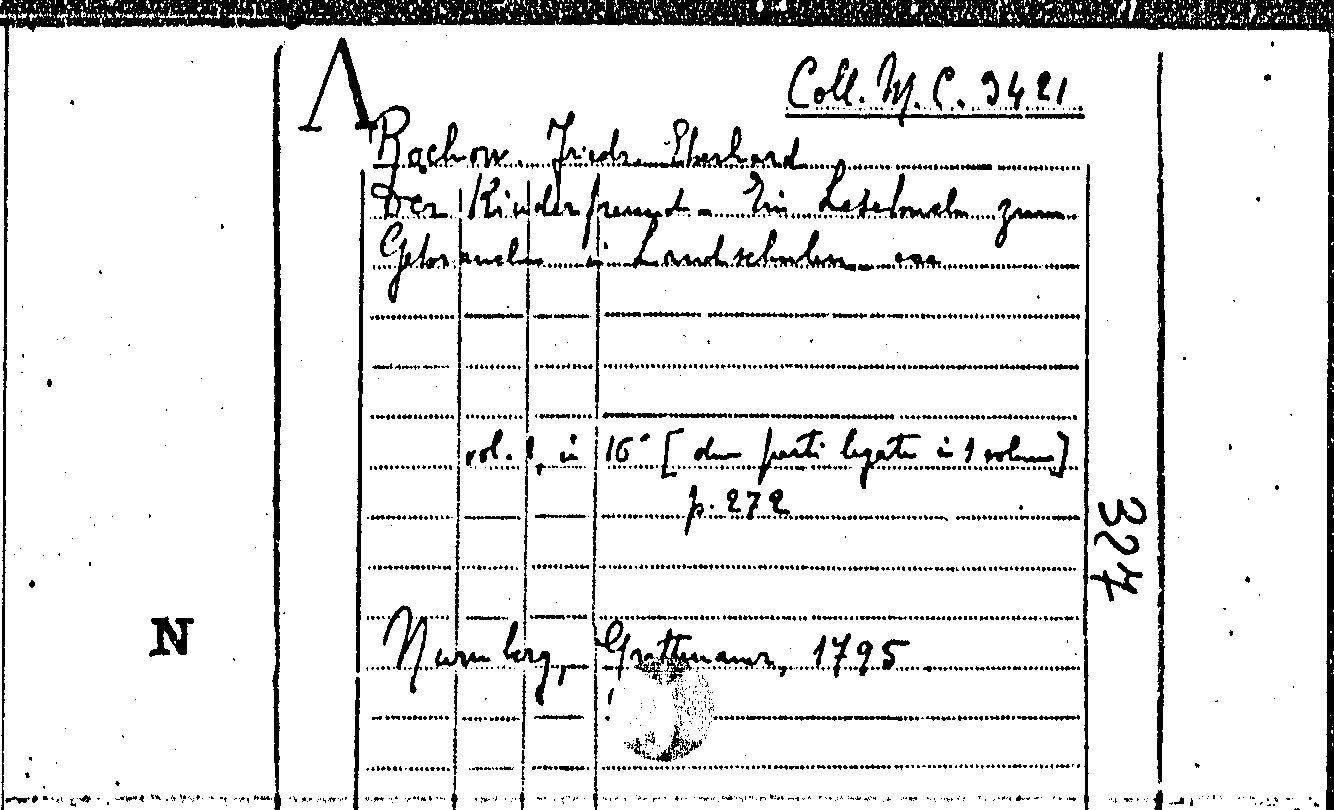 Λ
Coll. M. C. 3421
Rachow. Friedr. Eberhard
Der Kinderfreund. Ein Lesebuch zum
Gebrauche in Landschulen
vol. 1, in 16° [due parti legate in 1 volume]
p. 272
324
N
Nürnberg, Grattenauer, 1795